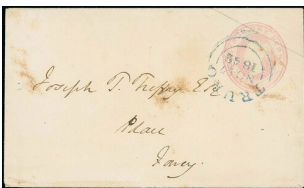 TRURO
Joseph T. Treffry Esq
Place
Fowey